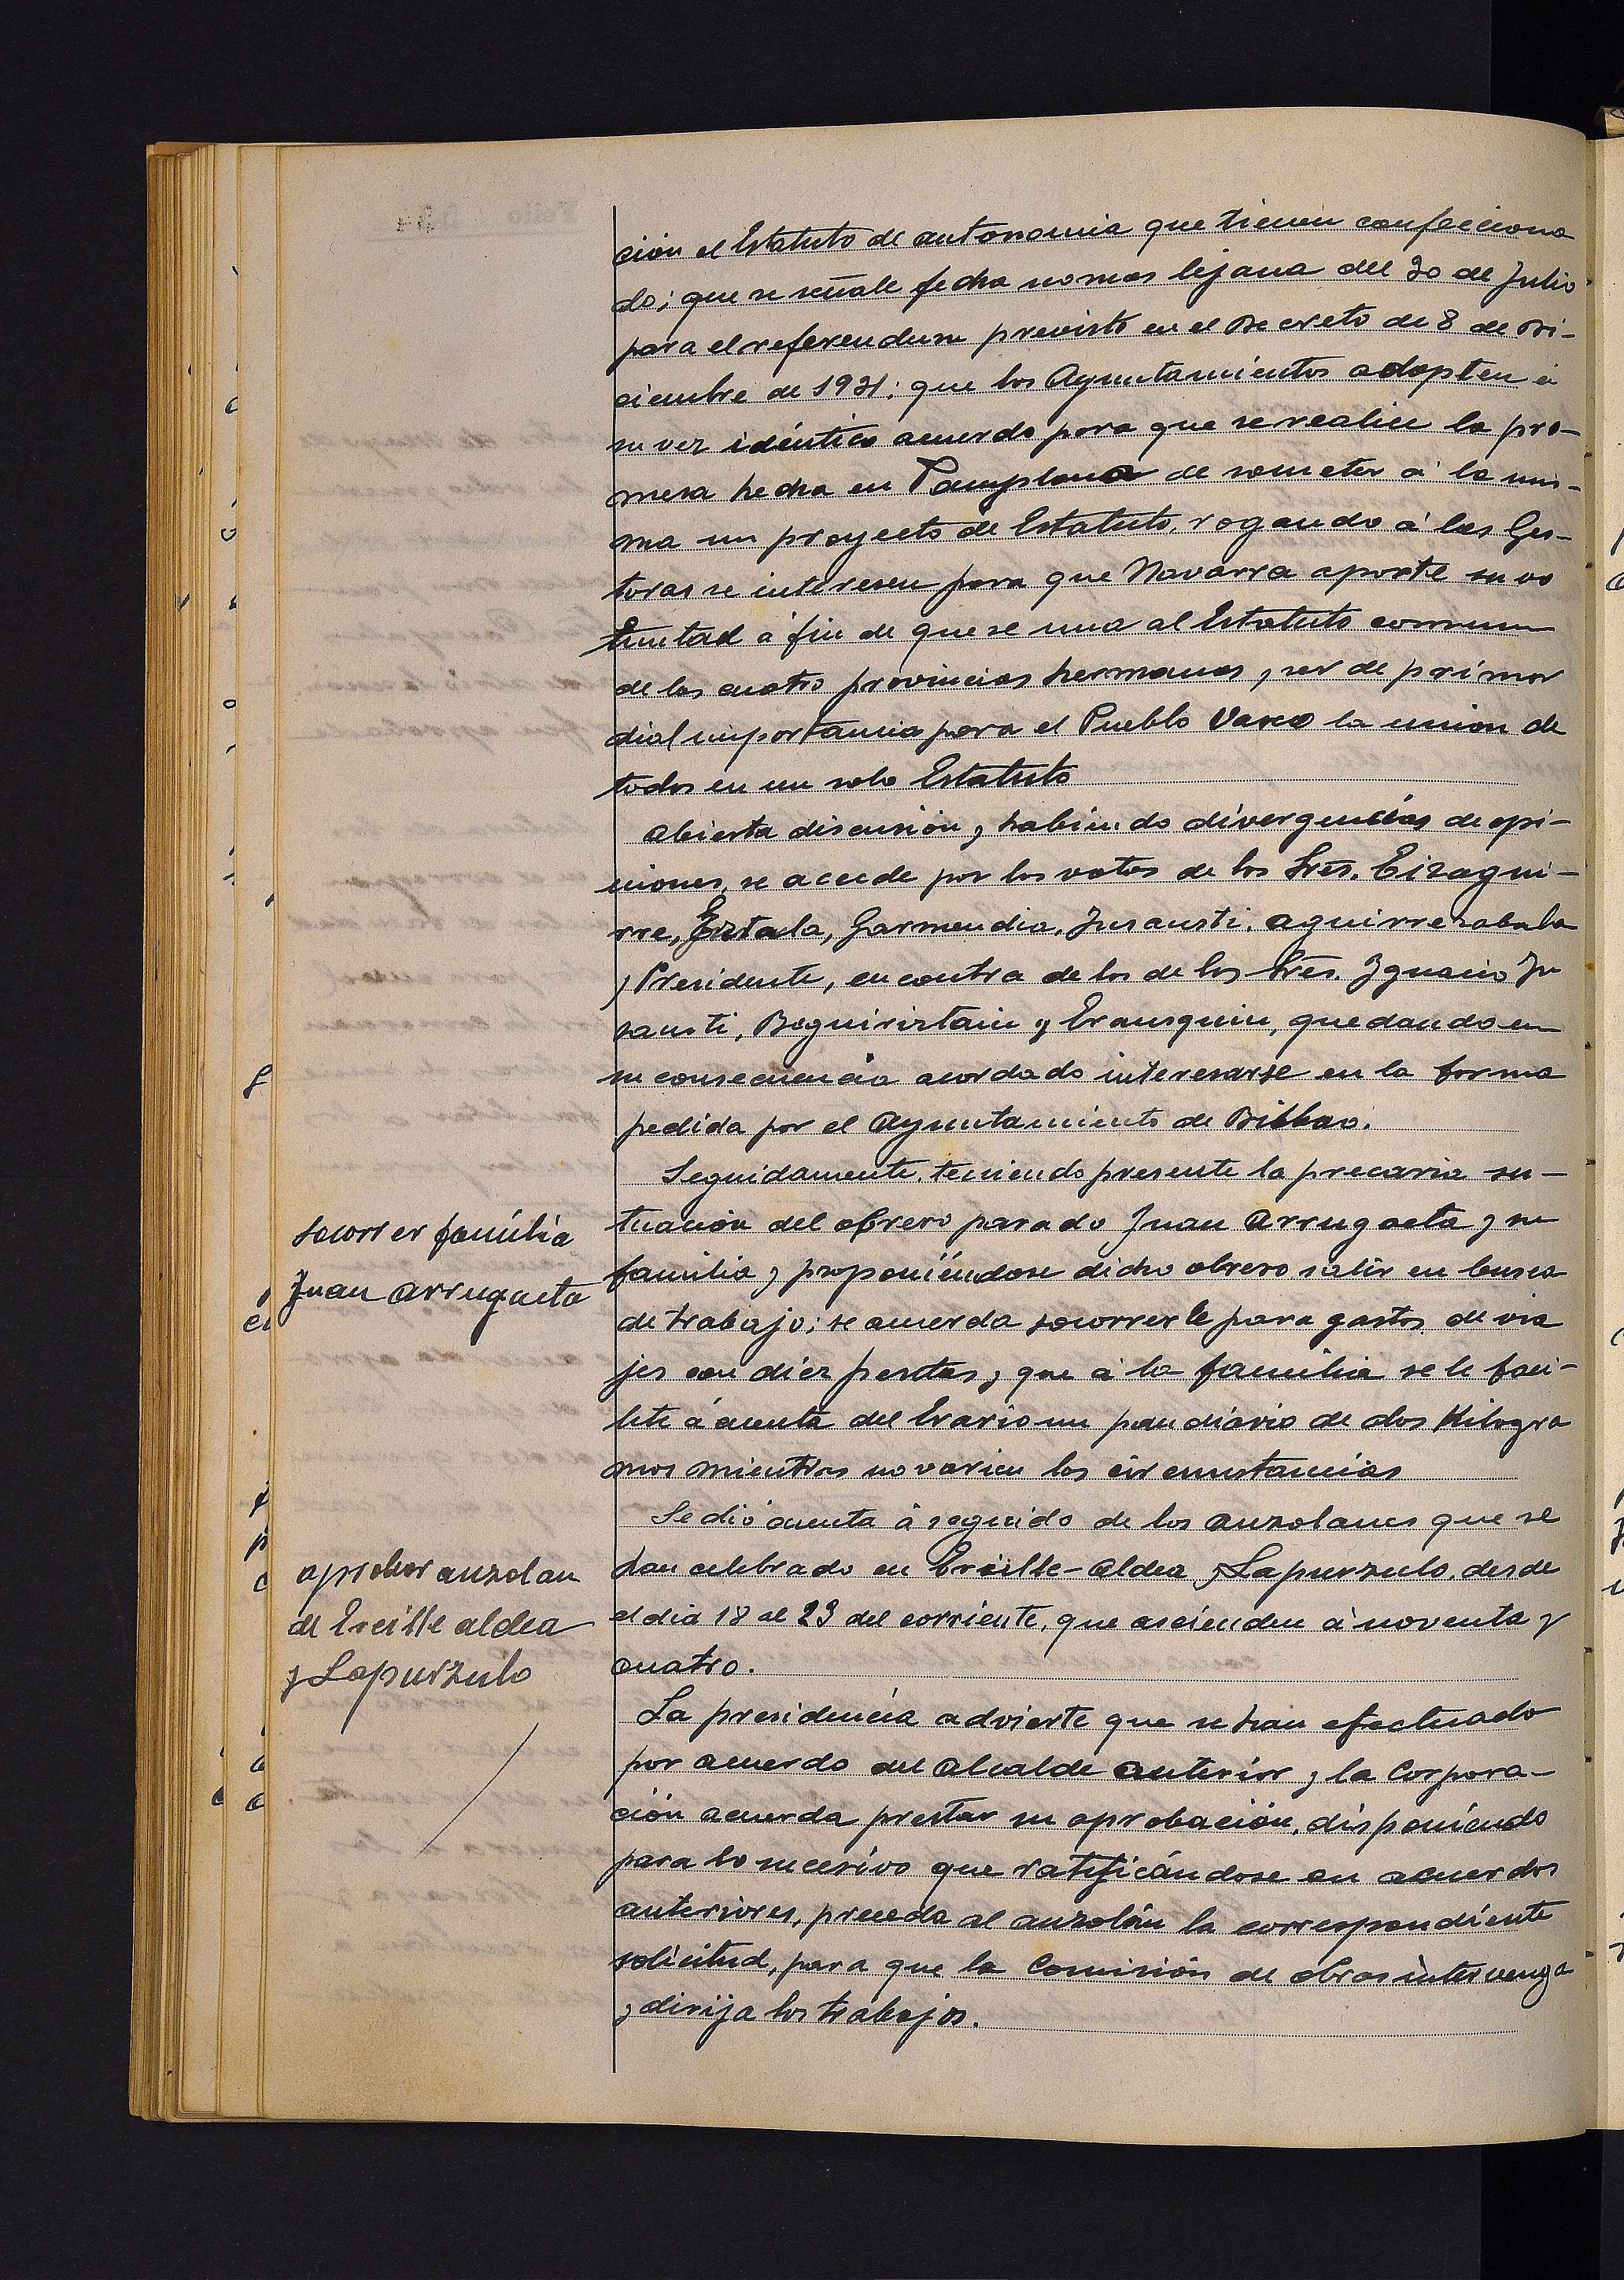 ción el Estatuto de autonomia que tienen confecciona
do; que se señale fecha no mas lejana del 30 de Julio
para el referendum previsto en el Decreto de 8 de Di-
ciembre de 1931; que los Ayuntamientos adopten á
su vez idéntico acuerdo para que se realice la pro-
mesa hecha en Pamplona de someter á la mis-
ma un proyecto de Estatuto, rogando á las Ges-
toras se interesen para que Navarra aporte su vo
luntad á fin de que se una al Estatuto comun
de las cuatro provincias hermanas, ser de primor
dial importancia para el Pueblo Vasco la union de
todos en un solo Estatuto
Abierta discusión y habiendo divergencias de opi-
niones, se accede por los votos de los Sres. Eizagui-
rre, Eztala, Garmendia, Jusausti, Aguirrezabala
y Presidente, en contra de los de los Sres. Ignacio Ju
sausti, Beguiristain y Erausquin, quedando en
su consecuencia acordado interesarse en la forma
pedida por el Ayuntamiento de Bilbao.
Seguidamente, teniendo presente la precaria su-
socorrer família
Juan Arrugaeta
tuación del obrero parado Juan Arrugaeta y su
familia y proponiéndose dicho obrero salir en busca
de trabajo; se acuerda socorrerle para gastos de via
jes con diez pesetas, y que á la familia se le faci-
lite á cuenta del Erario un pan diario de dos Kilogra
mos mientras no varien las circunstancias
Se dió cuenta á seguido de los auzolanes que se
aprobar auzolan
de Ercille aldea
y Lapurzulo
han celebrado en Ercille-Aldea y Lapurzulo, desde
el dia 18 al 23 del corriente, que ascienden á noventa y
cuatro.
La presidencia advierte que se han efectuado
por acuerdo del Alcalde anterior y la Corpora-
ción acuerda prestar su aprobación, disponiendo
para lo sucesivo que ratificándose en acuerdos
anteriores, preceda al auzolán la correspondiente
solicitud, para que la Comisión de obras intervenga
y dirija los trabajos.